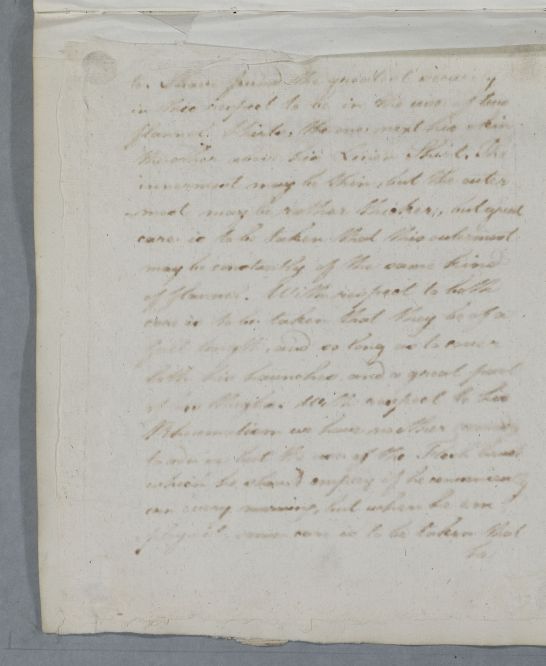 to. I have found the greatest security
in this respect to be in the use of two
flannel Shirts, the one next his skin
the other over his Linen Shirt. The
innermost may be thin, but the outer
most may be rather thicker, but great
care is to be taken that this outermost
may be constantly of the same kind
of flannel. With respect to both
care is to be taken that they be of a
full length, and so long as to cover
both his haunches, and a great part
of his thighs. With respect to his
Rheumatism we have no other remedy
to advise but the use of the Flesh brush
which he should employ if he conveniently
can every morning, but when he em
ploys it, some care is to be taken that
he